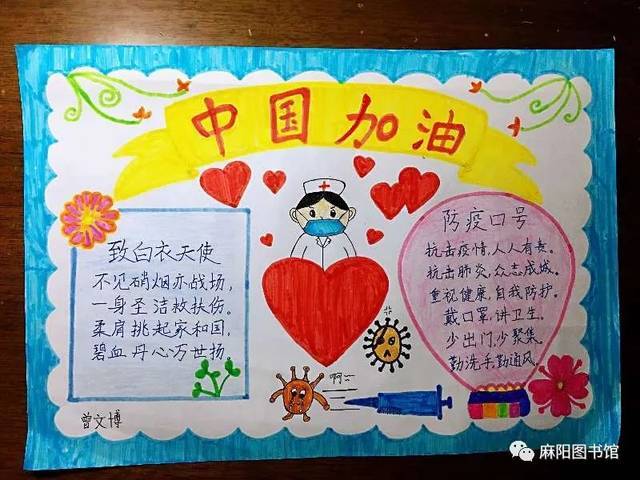 中国加油
致白衣天使
不见硝烟亦战场,
一身圣洁救扶伤。
柔肩挑起家和国,
碧血丹心万世扬
防疫口号
抗击疫情,人人有责。
抗击肺炎,众志成城。
重视健康,自我防护。
戴口罩,讲卫生。
少出门,少聚集。
勤洗手,勤通风。
啊
曾文博
麻阳图书馆